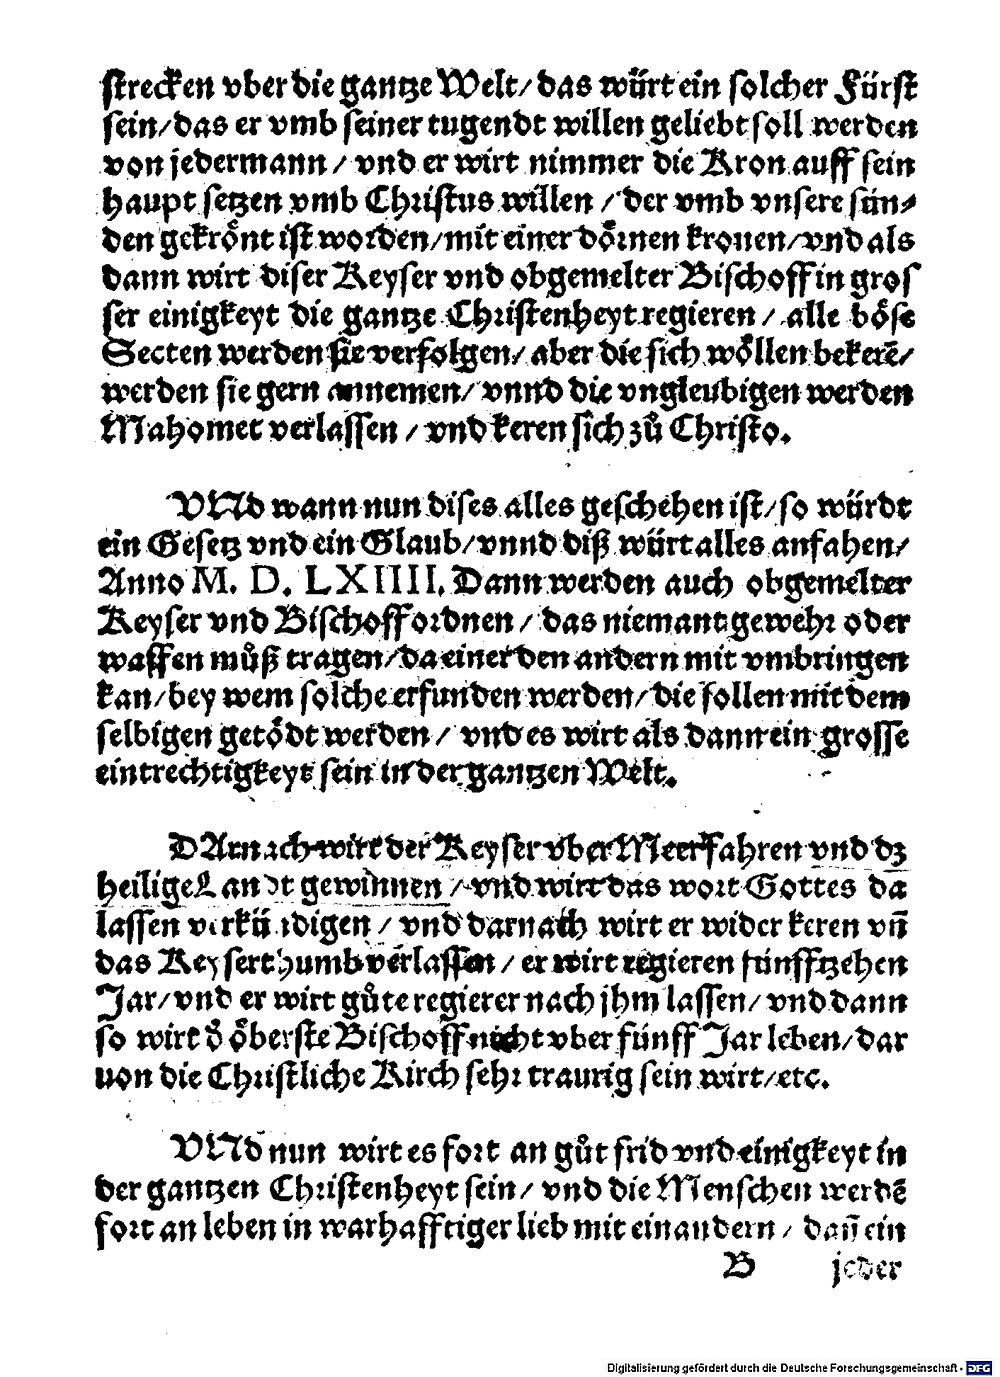 strecken vber die gantze Welt/ das würt ein solcher Fürst
sein/ das er vmb seiner tugendt willen geliebt soll werden
von jedermann / vnd er wirt nimmer die Kron auff sein
haupt setzen vmb Christus willen / der vmb vnsere sün⸗
den gekrönt ist worden/ mit einer dörnen kronen/ vnd als
dann wirt diser Keyser vnd obgemelter Bischoff in gros
ser einigkeyt die gantze Christenheyt regieren / alle böse
Secten werden sie verfolgen/ aber die sich wöllen bekerē/
werden sie gern annemen/ vnnd die vngleubigen werden
Mahomet verlassen / vnd keren sich zů Christo.
VNd wann nun dises alles geschehen ist/ so würdt
ein Gesetz vnd ein Glaub/ vnnd diß würt alles anfahen/
Anno M. D. LXIIII. Dann werden auch obgemelter
Keyser vnd Bischoff ordnen / das niemant gewehr oder
waffen můß tragen/ da einer den andern mit vmbringen
kan/ bey wem solche erfunden werden/ die sollen mit dem
selbigen getödt werden / vnd es wirt als dann ein grosse
eintrechtigkeyt sein in der gantzen Welt.
DArnach wirt der Keyser vber Meer fahren vnd dz
heilige Landt gewinnen / vnd wirt das wort Gottes da
lassen verkündigen / vnd darnach wirt er wider keren vn̄
das Keyserthumb verlassen / er wirt regieren fünfftzehen
Jar/ vnd er wirt gůte regierer nach jhm lassen/ vnd dann
so wirt d̓ öberste Bischoff nicht vber fünff Jar leben/ dar
uon die Christliche Kirch sehr traurig sein wirt/ etc.
VNd nun wirt es fort an gůt frid vnd einigkeyt in
der gantzen Christenheyt sein/ vnd die Menschen werdē
fort an leben in warhafftiger lieb mit einandern / dan̄ ein
B jeder
Digitalisierung gefördert durch die Deutsche Forschungsgemeinschaft - DFG